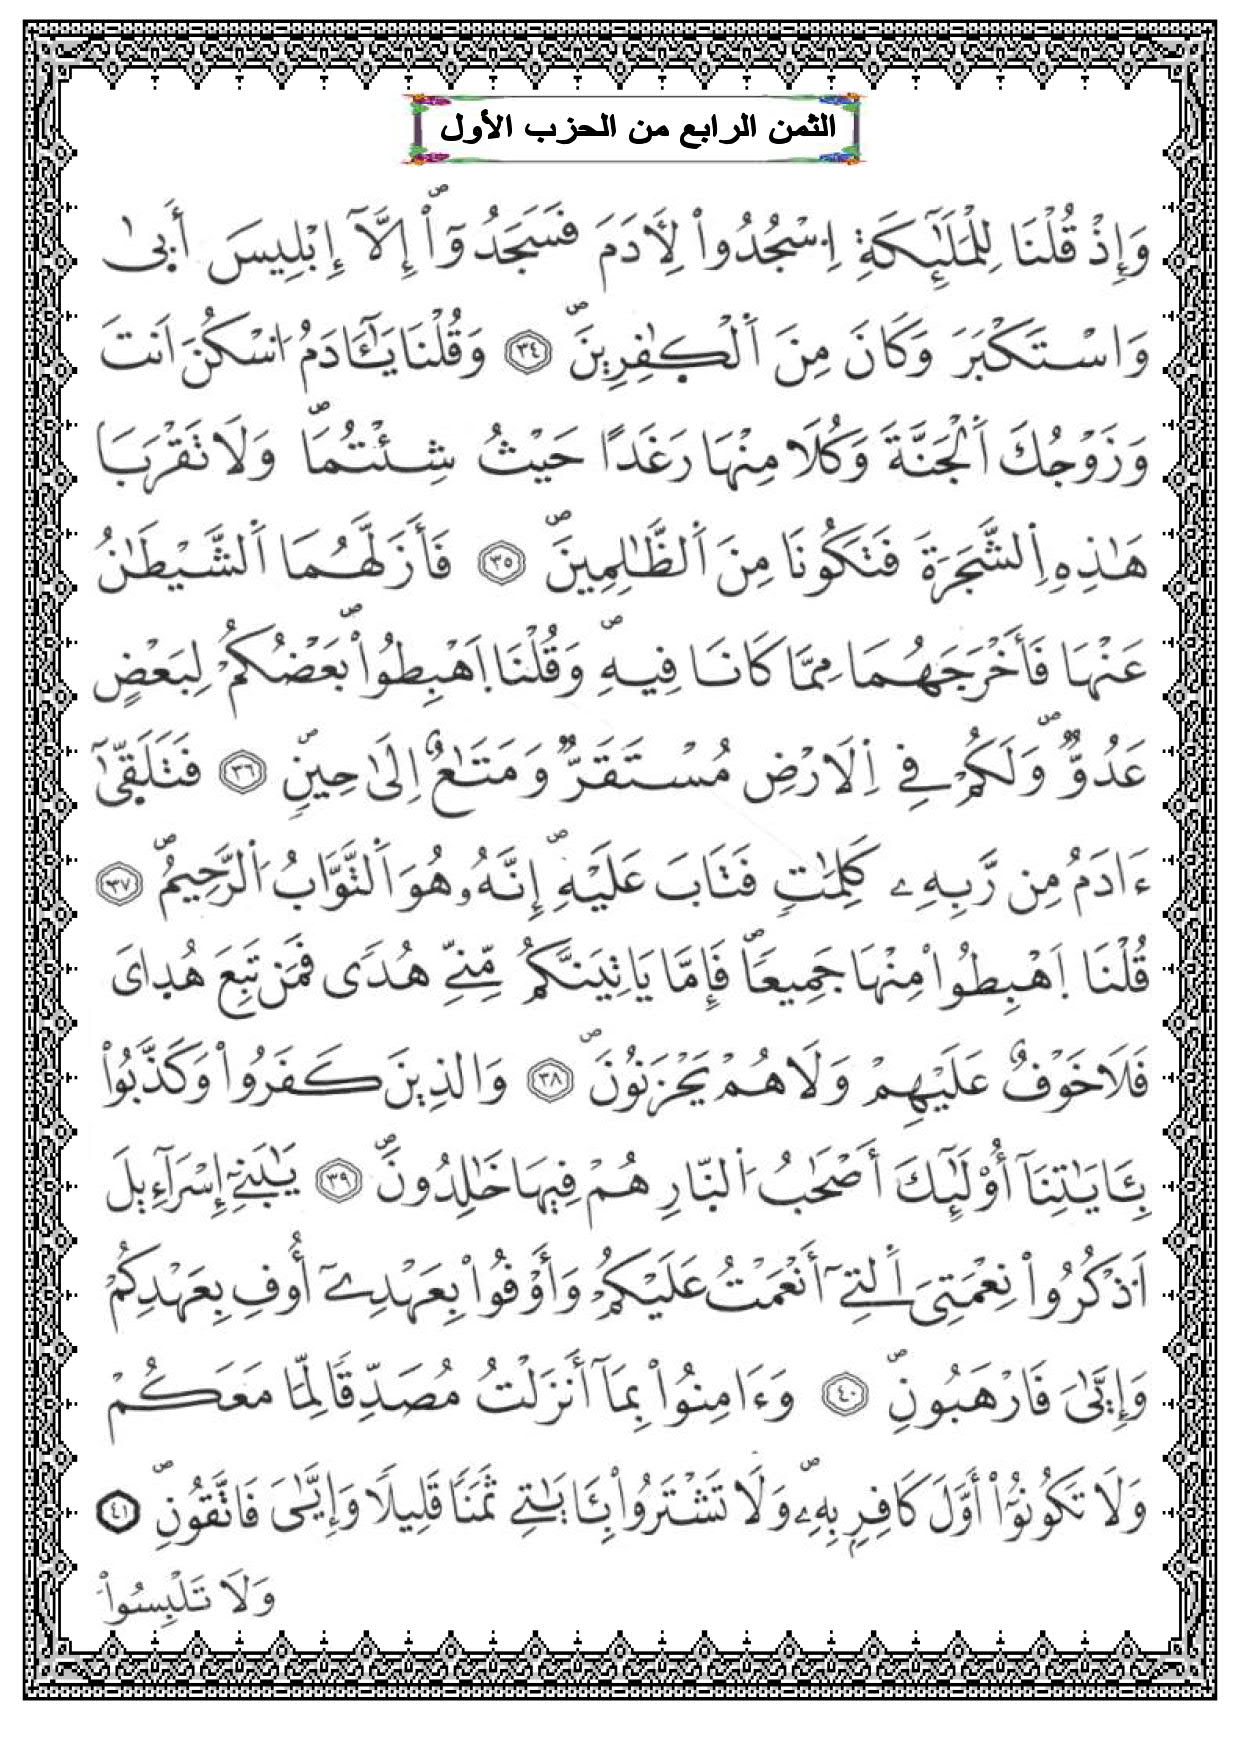 الثمن الرابع من الحزب الأول
وَإِذْ قُلْنَا لِلْمَلَٰٓئِكَةِ اِ۟سْجُدُوا۟ لِأٓدَمَ فَسَجَدُوٓا۟ۖ إِلَّآ إِبْلِيسَ أَب۪ىٰ
وَاسْتَكْبَرَ وَكَانَ مِنَ اَ۬لْكٰ۪فِرِينَۖ ٣٤ وَقُلْنَا يَٰٓـَٔادَمُ اُ۟سْكُنَ اَنتَ
وَزَوْجُكَ اَ۬لْجَنَّةَ وَكُلَا مِنْهَا رَغَدًا حَيْثُ شِئْتُمَاۖ وَلَا تَقْرَبَا
هَٰذِهِ اِ۬لشَّجَرَةَ فَتَكُونَا مِنَ اَ۬لظَّٰلِمِينَۖ ٣٥ فَأَزَلَّهُمَا اَ۬لشَّيْطَٰنُ
عَنْهَا فَأَخْرَجَهُمَا مِمَّا كَانَا فِيهِۖ وَقُلْنَا اَ۪هْبِطُوا۟ۖ بَعْضُكُمْ لِبَعْضٍ
عَدُوٌّۖ وَلَكُمْ فِے اِ۬لَارْضِ مُسْتَقَرٌّ وَمَتَٰعٌ إِلَىٰ حِينٍۖ ٣٦ فَتَلَقّ۪ىٰٓ
ءَادَمُ مِن رَّبِّهِۦ كَلِمَٰتٍ فَتَابَ عَلَيْهِۖ إِنَّهُۥ هُوَ اَ۬لتَّوَّابُ اُ۬لرَّحِيمُۖ ٣٧
قُلْنَا اَ۪هْبِطُوا۟ مِنْهَا جَمِيعًاۖ فَإِمَّا يَاتِيَنَّكُم مِّنِّے هُدًى فَمَن تَبِعَ هُد۪اىَ
فَلَا خَوْفٌ عَلَيْهِمْ وَلَا هُمْ يَحْزَنُونَۖ ٣٨ وَالذِينَ كَفَرُوا۟ وَكَذَّبُوا۟
بِـَٔايَٰتِنَآ أُو۟لَٰٓئِكَ أَصْحَٰبُ اُ۬لنّ۪ارِ هُمْ فِيهَا خَٰلِدُونَۖ ٣٩ يَٰبَنِےٓ إِسْرَآءِيلَ
اَ۟ذْكُرُوا۟ نِعْمَتِىَ اَ۬لتِےٓ أَنْعَمْتُ عَلَيْكُمْ وَأَوْفُوا۟ بِعَهْدِےٓ أُوفِ بِعَهْدِكُمْ
وَإِيَّٰىَ فَارْهَبُونِۖ ٤٠ وَءَامِنُوا۟ بِمَآ أَنزَلْتُ مُصَدِّقًا لِّمَا مَعَكُمْ
وَلَا تَكُونُوٓا۟ أَوَّلَ كَافِرٍۭ بِهِۦۖ وَلَا تَشْتَرُوا۟ بِـَٔايَٰتِے ثَمَنًا قَلِيلًا وَإِيَّٰىَ فَاتَّقُونِۖ ٤١
وَلَا تَلْبِسُوا۟